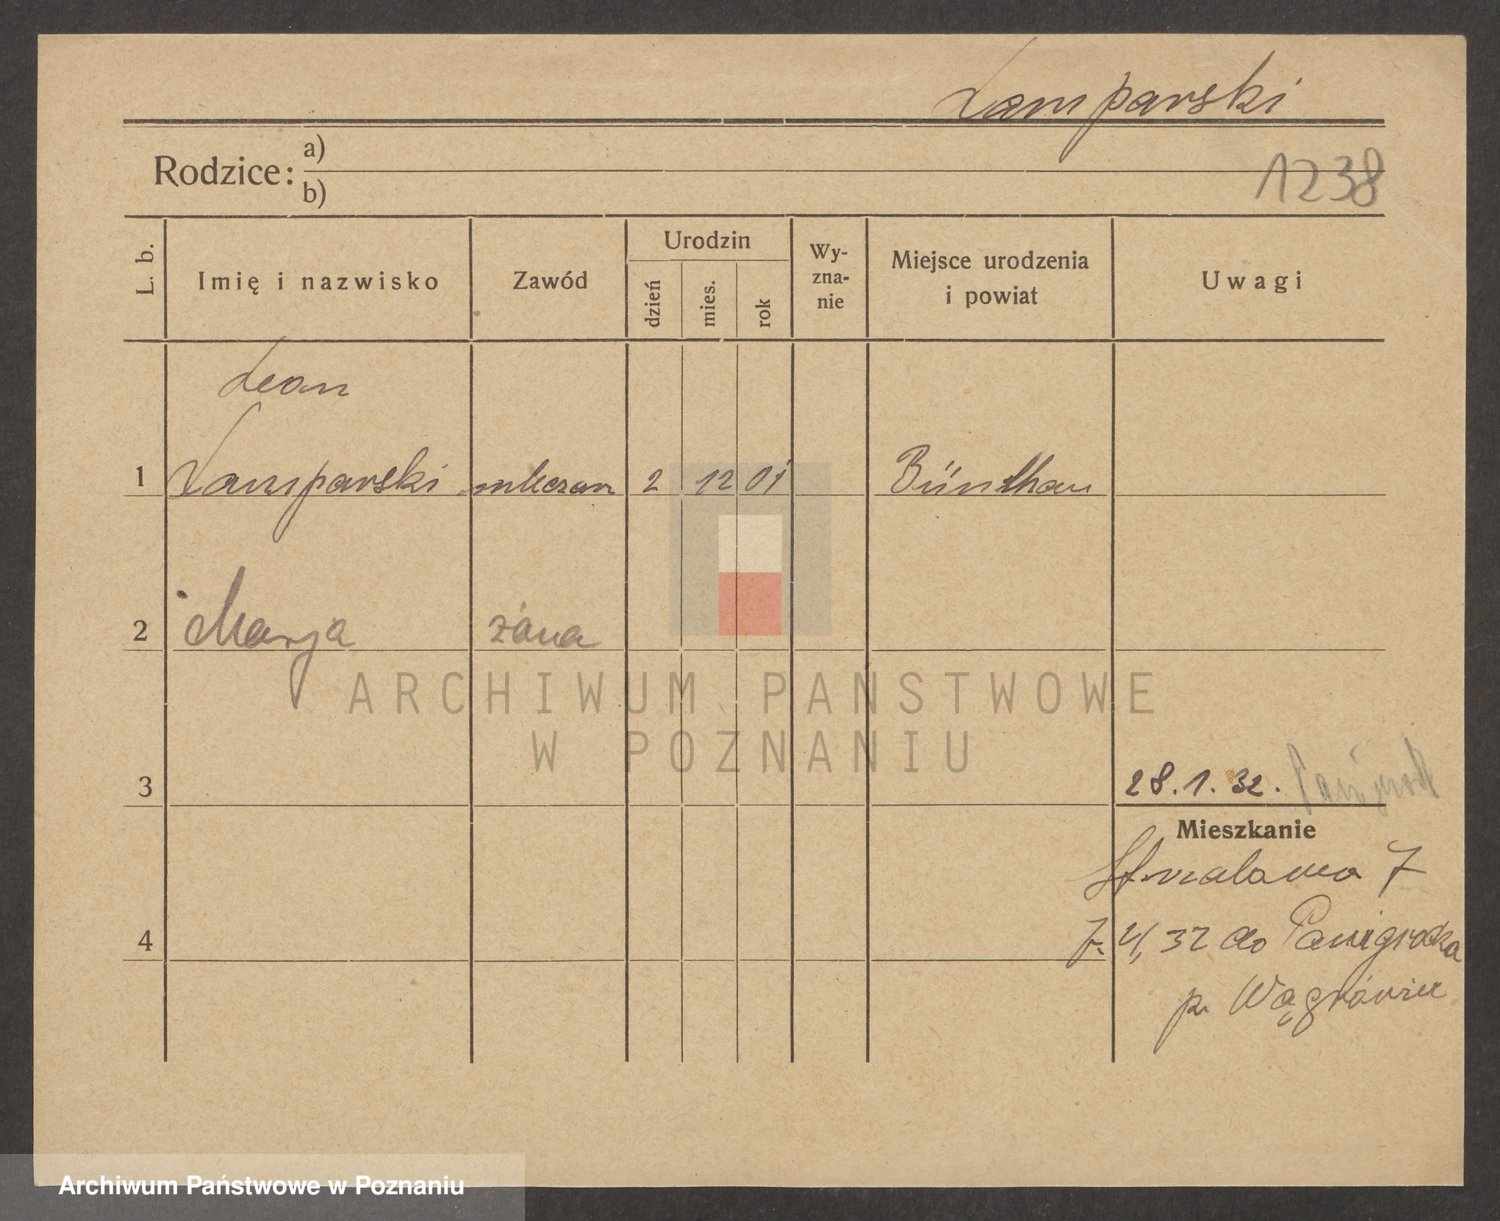 Lamparski
Rodzice: a)
b)
1238
L. b.
Imię i nazwisko
Zawód
Urodzin
dzień
mies.
rok
Wy-
zna-
nie
Miejsce urodzenia
i powiat
Uwagi
Leon
1 Lamparski mleczarz 2 12 01 Bünthau
2 Marja żona
ARCHIWUM PAŃSTWOWE
W POZNANIU
3
28.1.32.
Mieszkanie
7
4
7. 4/32 do Panigrodza
p. Wągrówiec
Archiwum Państwowe w Poznaniu